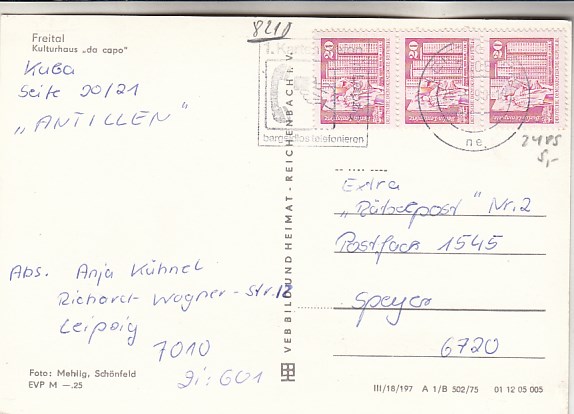 8210
Freital
Kulturhaus „da capo"
Kuba
Seite 20/21
„ANTILLEN"
20 20 20
bargeldlos telefonieren
ne.
24 PS
5,-
VEB BILD UND HEIMAT - REICHENBACH i. V.
Extra
„Rätselpost" Nr. 2
Postfach 1545
Speyer
6720
Abs. Anja Kühnel
Richard-Wagner-Str. 12
Leipzig
7010
Foto: Mehlig, Schönfeld
EVP M —.25
III/18/197 A 1/B 502/75 01 12 05 005